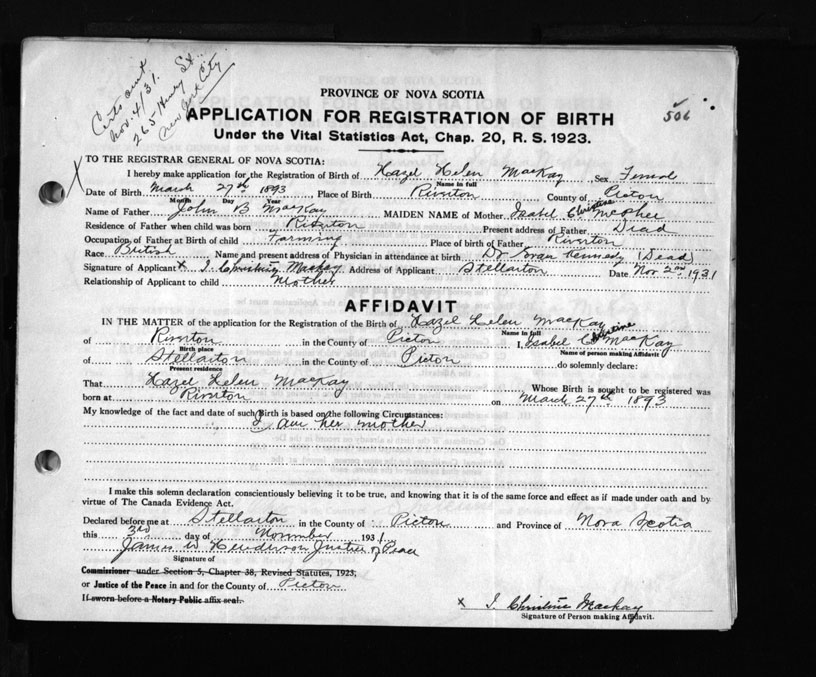 Certs sent
Nov. 4/31.
265 Henry St.
New York City
506
PROVINCE OF NOVA SCOTIA
APPLICATION FOR REGISTRATION OF BIRTH
Under the Vital Statistics Act, Chap. 20, R. S. 1923.
TO THE REGISTRAR GENERAL OF NOVA SCOTIA:
I hereby make application for the Registration of Birth of Hazel Helen MacKay Sex Female
Name in full
Date of Birth March 27th 1893 Place of Birth Riverton County of Pictou
Month Day Year
Name of Father John B MacKay MAIDEN NAME of Mother Isabel Christine McPhee
Residence of Father when child was born Riverton Present address of Father Dead
Occupation of Father at Birth of child Farming Place of birth of Father Riverton
Race British Name and present address of Physician in attendance at birth Dr Evan Kennedy (Dead)
Signature of Applicant x I. Christine MacKay Address of Applicant Stellarton Date Nov 2nd 1931
Relationship of Applicant to child Mother
AFFIDAVIT
IN THE MATTER of the application for the Registration of the Birth of Hazel Helen MacKay
Name in full
of Riverton in the County of Pictou I, Isabel Christine MacKay
Birth place Name of person making Affidavit
of Stellarton in the County of Pictou do solemnly declare:
Present residence
That Hazel Helen MacKay Whose Birth is sought to be registered was
born at Riverton on March 27th 1893
My knowledge of the fact and date of such Birth is based on the following Circumstances:
I am her mother
I make this solemn declaration conscientiously believing it to be true, and knowing that it is of the same force and effect as if made under oath and by
virtue of The Canada Evidence Act.
Declared before me at Stellarton in the County of Pictou and Province of Nova Scotia
this 3rd day of November 1931
James W Henderson Justice of Peace
Signature of
Commissioner under Section 5, Chapter 38, Revised Statutes, 1923;
or Justice of the Peace in and for the County of Pictou
If sworn before a Notary Public affix seal.
x I. Christine Mackay
Signature of Person making Affidavit.